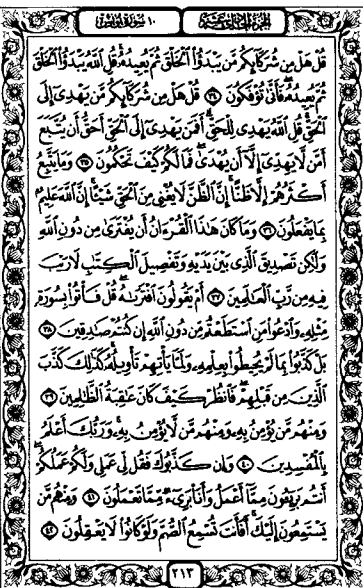 الجزء الحادي عشر ١٠ سورة يونس
قُلْ هَلْ مِن شُرَكَآئِكُم مَّن يَبْدَؤُا۟ ٱلْخَلْقَ ثُمَّ يُعِيدُهُۥ قُلِ ٱللَّهُ يَبْدَؤُا۟ ٱلْخَلْقَ
ثُمَّ يُعِيدُهُۥ فَأَنَّىٰ تُؤْفَكُونَ ٣٤ قُلْ هَلْ مِن شُرَكَآئِكُم مَّن يَهْدِىٓ إِلَى
ٱلْحَقِّ قُلِ ٱللَّهُ يَهْدِى لِلْحَقِّ أَفَمَن يَهْدِىٓ إِلَى ٱلْحَقِّ أَحَقُّ أَن يُتَّبَعَ
أَمَّن لَّا يَهِدِّىٓ إِلَّآ أَن يُهْدَىٰ فَمَا لَكُمْ كَيْفَ تَحْكُمُونَ ٣٥ وَمَا يَتَّبِعُ
أَكْثَرُهُمْ إِلَّا ظَنًّا إِنَّ ٱلظَّنَّ لَا يُغْنِى مِنَ ٱلْحَقِّ شَيْـًٔا إِنَّ ٱللَّهَ عَلِيمٌۢ
بِمَا يَفْعَلُونَ ٣٦ وَمَا كَانَ هَٰذَا ٱلْقُرْءَانُ أَن يُفْتَرَىٰ مِن دُونِ ٱللَّهِ
وَلَٰكِن تَصْدِيقَ ٱلَّذِى بَيْنَ يَدَيْهِ وَتَفْصِيلَ ٱلْكِتَٰبِ لَا رَيْبَ
فِيهِ مِن رَّبِّ ٱلْعَٰلَمِينَ ٣٧ أَمْ يَقُولُونَ ٱفْتَرَىٰهُ قُلْ فَأْتُوا۟ بِسُورَةٍ
مِّثْلِهِۦ وَٱدْعُوا۟ مَنِ ٱسْتَطَعْتُم مِّن دُونِ ٱللَّهِ إِن كُنتُمْ صَٰدِقِينَ ٣٨
بَلْ كَذَّبُوا۟ بِمَا لَمْ يُحِيطُوا۟ بِعِلْمِهِۦ وَلَمَّا يَأْتِهِمْ تَأْوِيلُهُۥ كَذَٰلِكَ كَذَّبَ
ٱلَّذِينَ مِن قَبْلِهِمْ فَٱنظُرْ كَيْفَ كَانَ عَٰقِبَةُ ٱلظَّٰلِمِينَ ٣٩
وَمِنْهُم مَّن يُؤْمِنُ بِهِۦ وَمِنْهُم مَّن لَّا يُؤْمِنُ بِهِۦ وَرَبُّكَ أَعْلَمُ
بِٱلْمُفْسِدِينَ ٤٠ وَإِن كَذَّبُوكَ فَقُل لِّى عَمَلِى وَلَكُمْ عَمَلُكُمْ
أَنتُم بَرِيٓـُٔونَ مِمَّآ أَعْمَلُ وَأَنَا۠ بَرِىٓءٌ مِّمَّا تَعْمَلُونَ ٤١ وَمِنْهُم مَّن
يَسْتَمِعُونَ إِلَيْكَ أَفَأَنتَ تُسْمِعُ ٱلصُّمَّ وَلَوْ كَانُوا۟ لَا يَعْقِلُونَ ٤٢
٢١٣